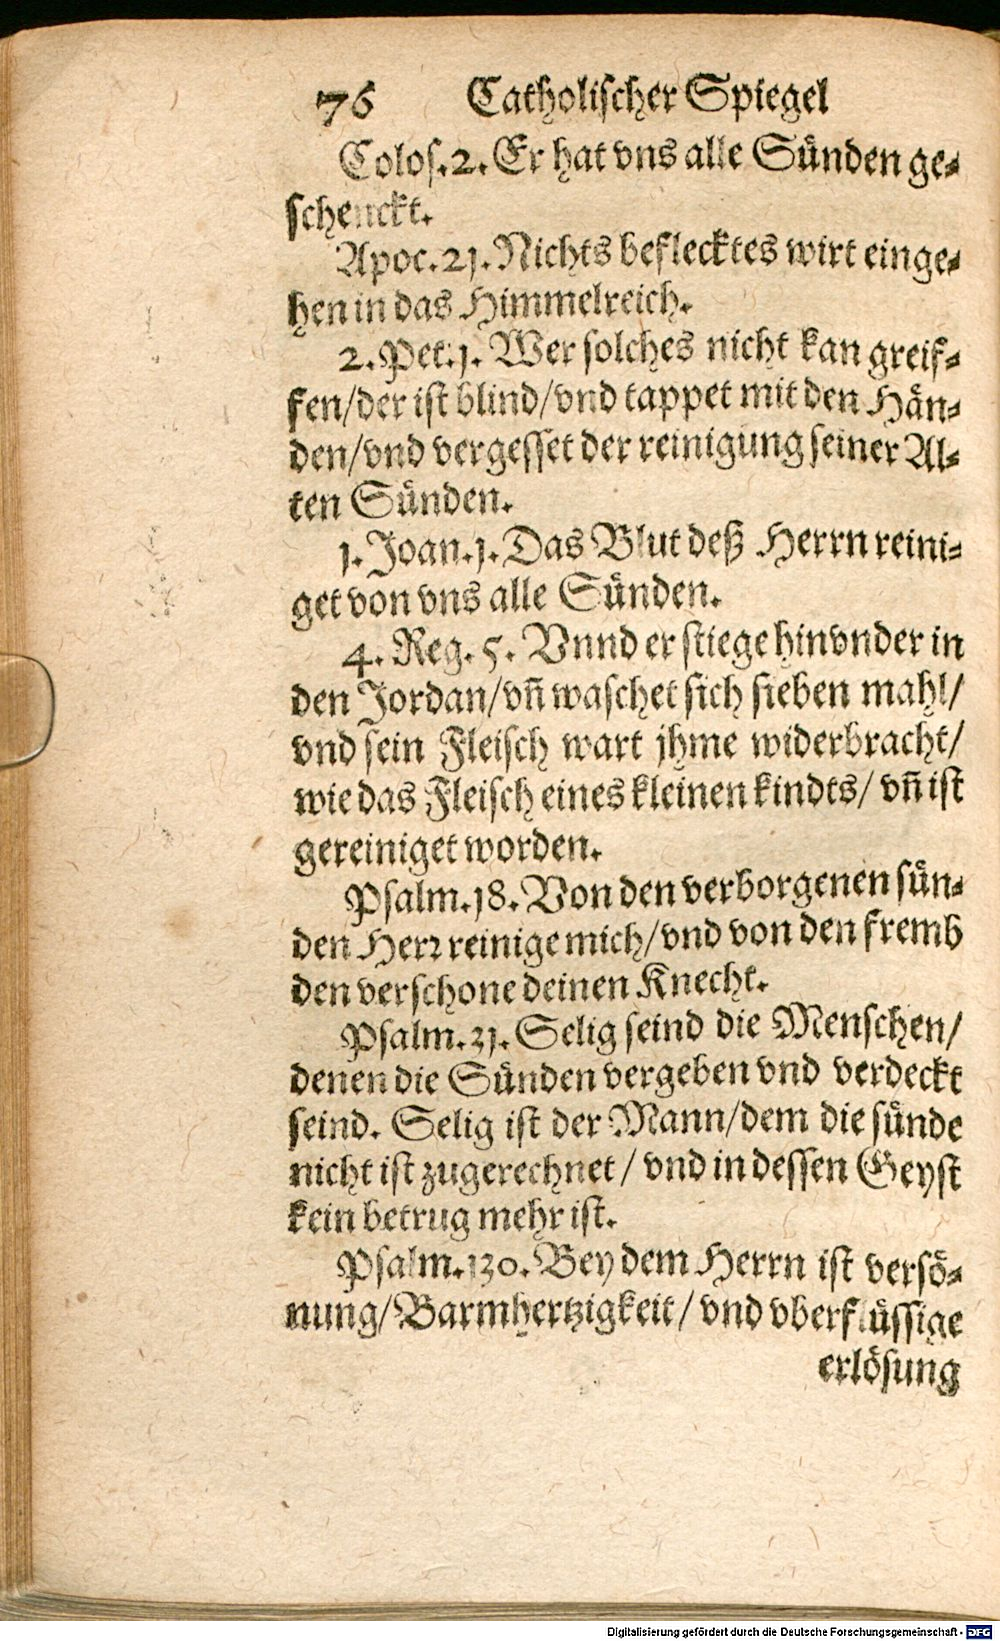 76 Catholischer Spiegel
Colos.2. Er hat vns alle Sünden ge-
schenckt.
Apoc.21. Nichts beflecktes wirt einge-
hen in das Himmelreich.
2. Pet. 1. Wer solches nicht kan greif-
fen/der ist blind/vnd tappet mit den Hän-
den/vnd vergesset der reinigung seiner Al-
ten Sünden.
1. Joan. 1. Das Blut deß Herrn reini-
get von vns alle Sünden.
4. Reg. 5. Vnnd er stiege hinvnder in
den Jordan/vñ waschet sich sieben mahl/
vnd sein Fleisch wart jhme widerbracht/
wie das Fleisch eines kleinen kindts/ vñ ist
gereiniget worden.
Psalm.18. Von den verborgenen sün-
den Herꝛ reinige mich/vnd von den fremb
den verschone deinen Knecht.
Psalm.31. Selig seind die Menschen/
denen die Sünden vergeben vnd verdeckt
seind. Selig ist der Mann/dem die sünde
nicht ist zugerechnet / vnd in dessen Geyst
kein betrug mehr ist.
Psalm.130. Bey dem Herrn ist versö-
nung/Barmhertzigkeit / vnd vberflüssige
erlösung
Digitalisierung gefördert durch die Deutsche Forschungsgemeinschaft - DFG